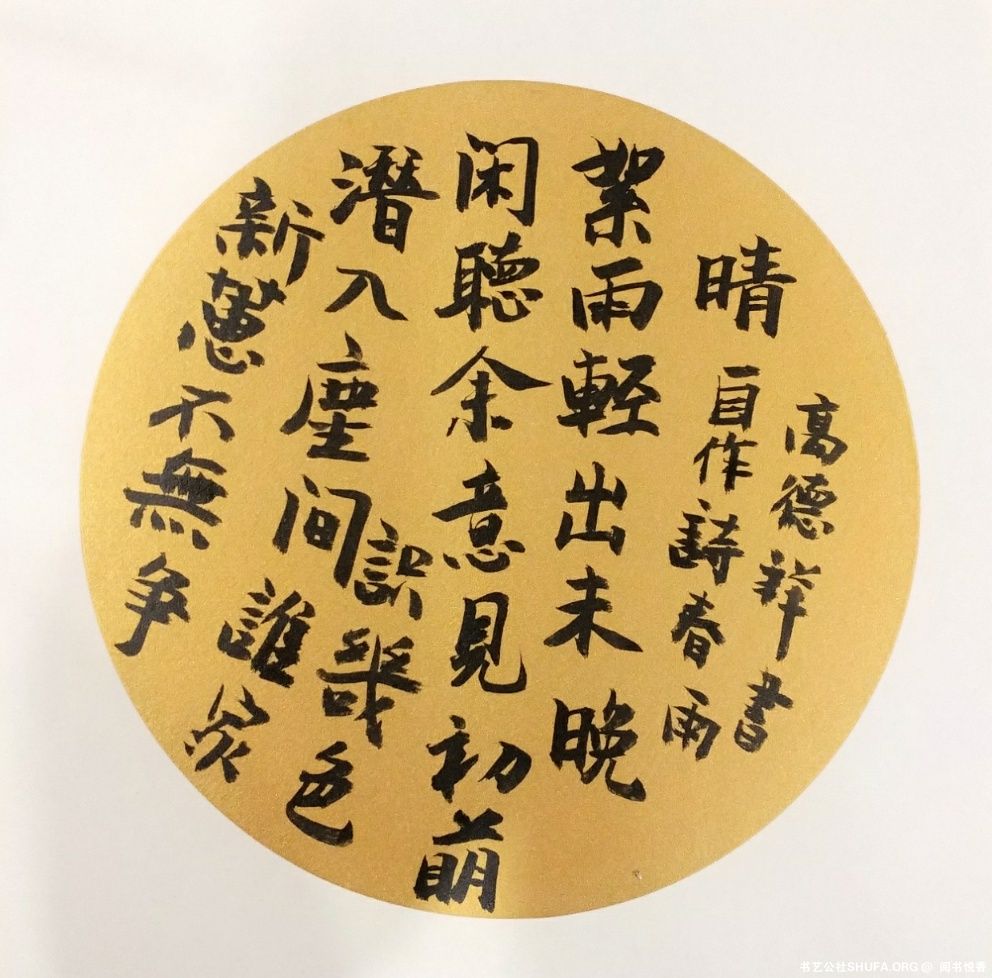 新蕙不無争
潜入塵間誰家
識幾色
闲聽余意見初萌
絮雨輕出未晚
晴 自作詩春雨
高德祥書
书艺公社SHUFA.ORG@ 闻书悦香